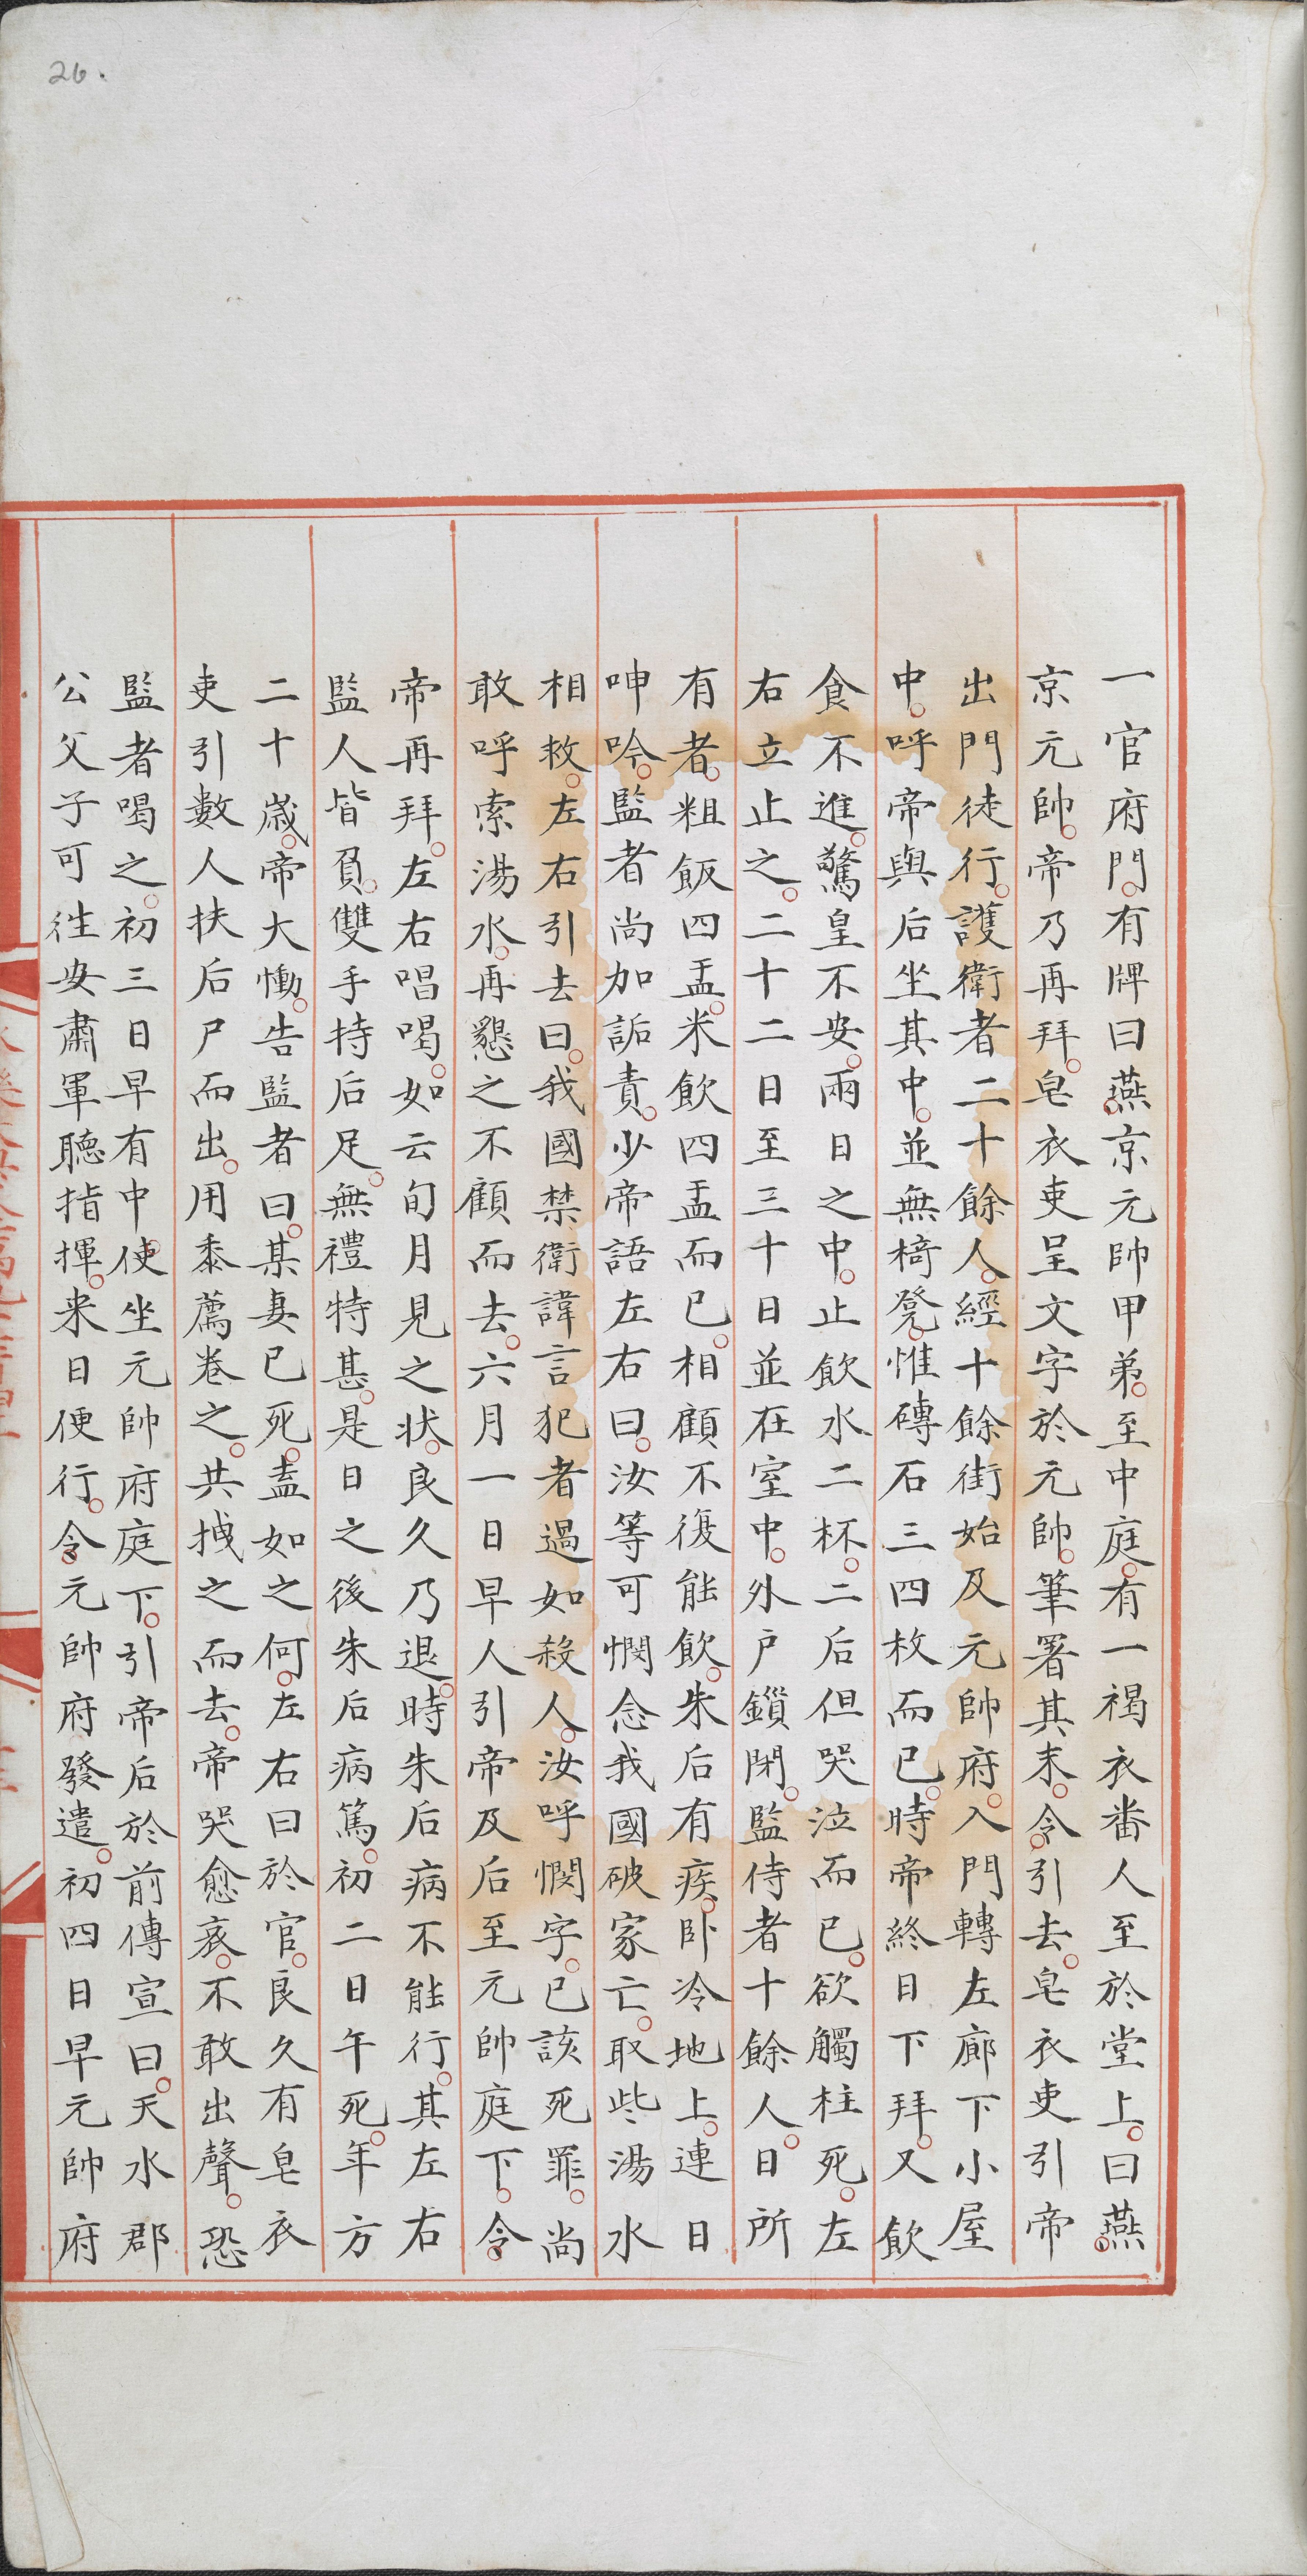 26.
一官府門有牌曰燕京元帥甲弟至中庭有一褐衣番人至於堂上曰燕
京元帥帝乃再拜皂衣吏呈文字於元帥筆署其末令引去皂衣吏引帝
出門徒行護衛者二十餘人經十餘街始及元帥府入門轉左廊下小屋
中呼帝與后坐其中並無椅凳惟磚石三四枚而已時帝終日下拜又飲
食不進驚皇不安兩日之中止飲水二杯二后但哭泣而已欲觸柱死左
右立止之二十二日至三十日並在室中外戶鎖閉監侍者十餘人日所
有者粗飯四盂米飲四盂而已相顧不復能飲朱后有疾卧冷地上連日
呻吟監者尚加詬責少帝語左右曰汝等可憫念我國破家亡取些湯水
相救左右引去曰我國禁衛諱言犯者過如殺人汝呼憫字已該死罪尚
敢呼索湯水再懇之不顧而去六月一日早人引帝及后至元帥庭下令
帝再拜左右唱喝如云旬月見之状良久乃退時朱后病不能行其左右
監人皆負雙手持后足無禮特甚是日之後朱后病篤初二日午死年方
二十歳帝大慟告監者曰某妻已死盍如之何左右曰於官良久有皂衣
吏引數人扶后尸而出用黍薦卷之共拽之而去帝哭愈哀不敢出聲恐
監者喝之初三日早有中使坐元帥府庭下引帝后於前傳宣曰天水郡
公父子可徃安肅軍聽指揮来日便行令元帥府發遣初四日早元帥府